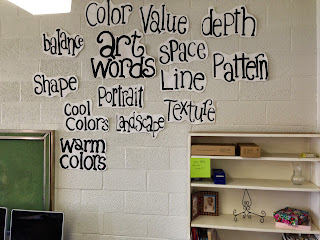 Color
Value
depth
balance
art
words
space
Pattern
Shape
Portrait
Line
Cool
Colors
Landscape
Texture
warm
colors